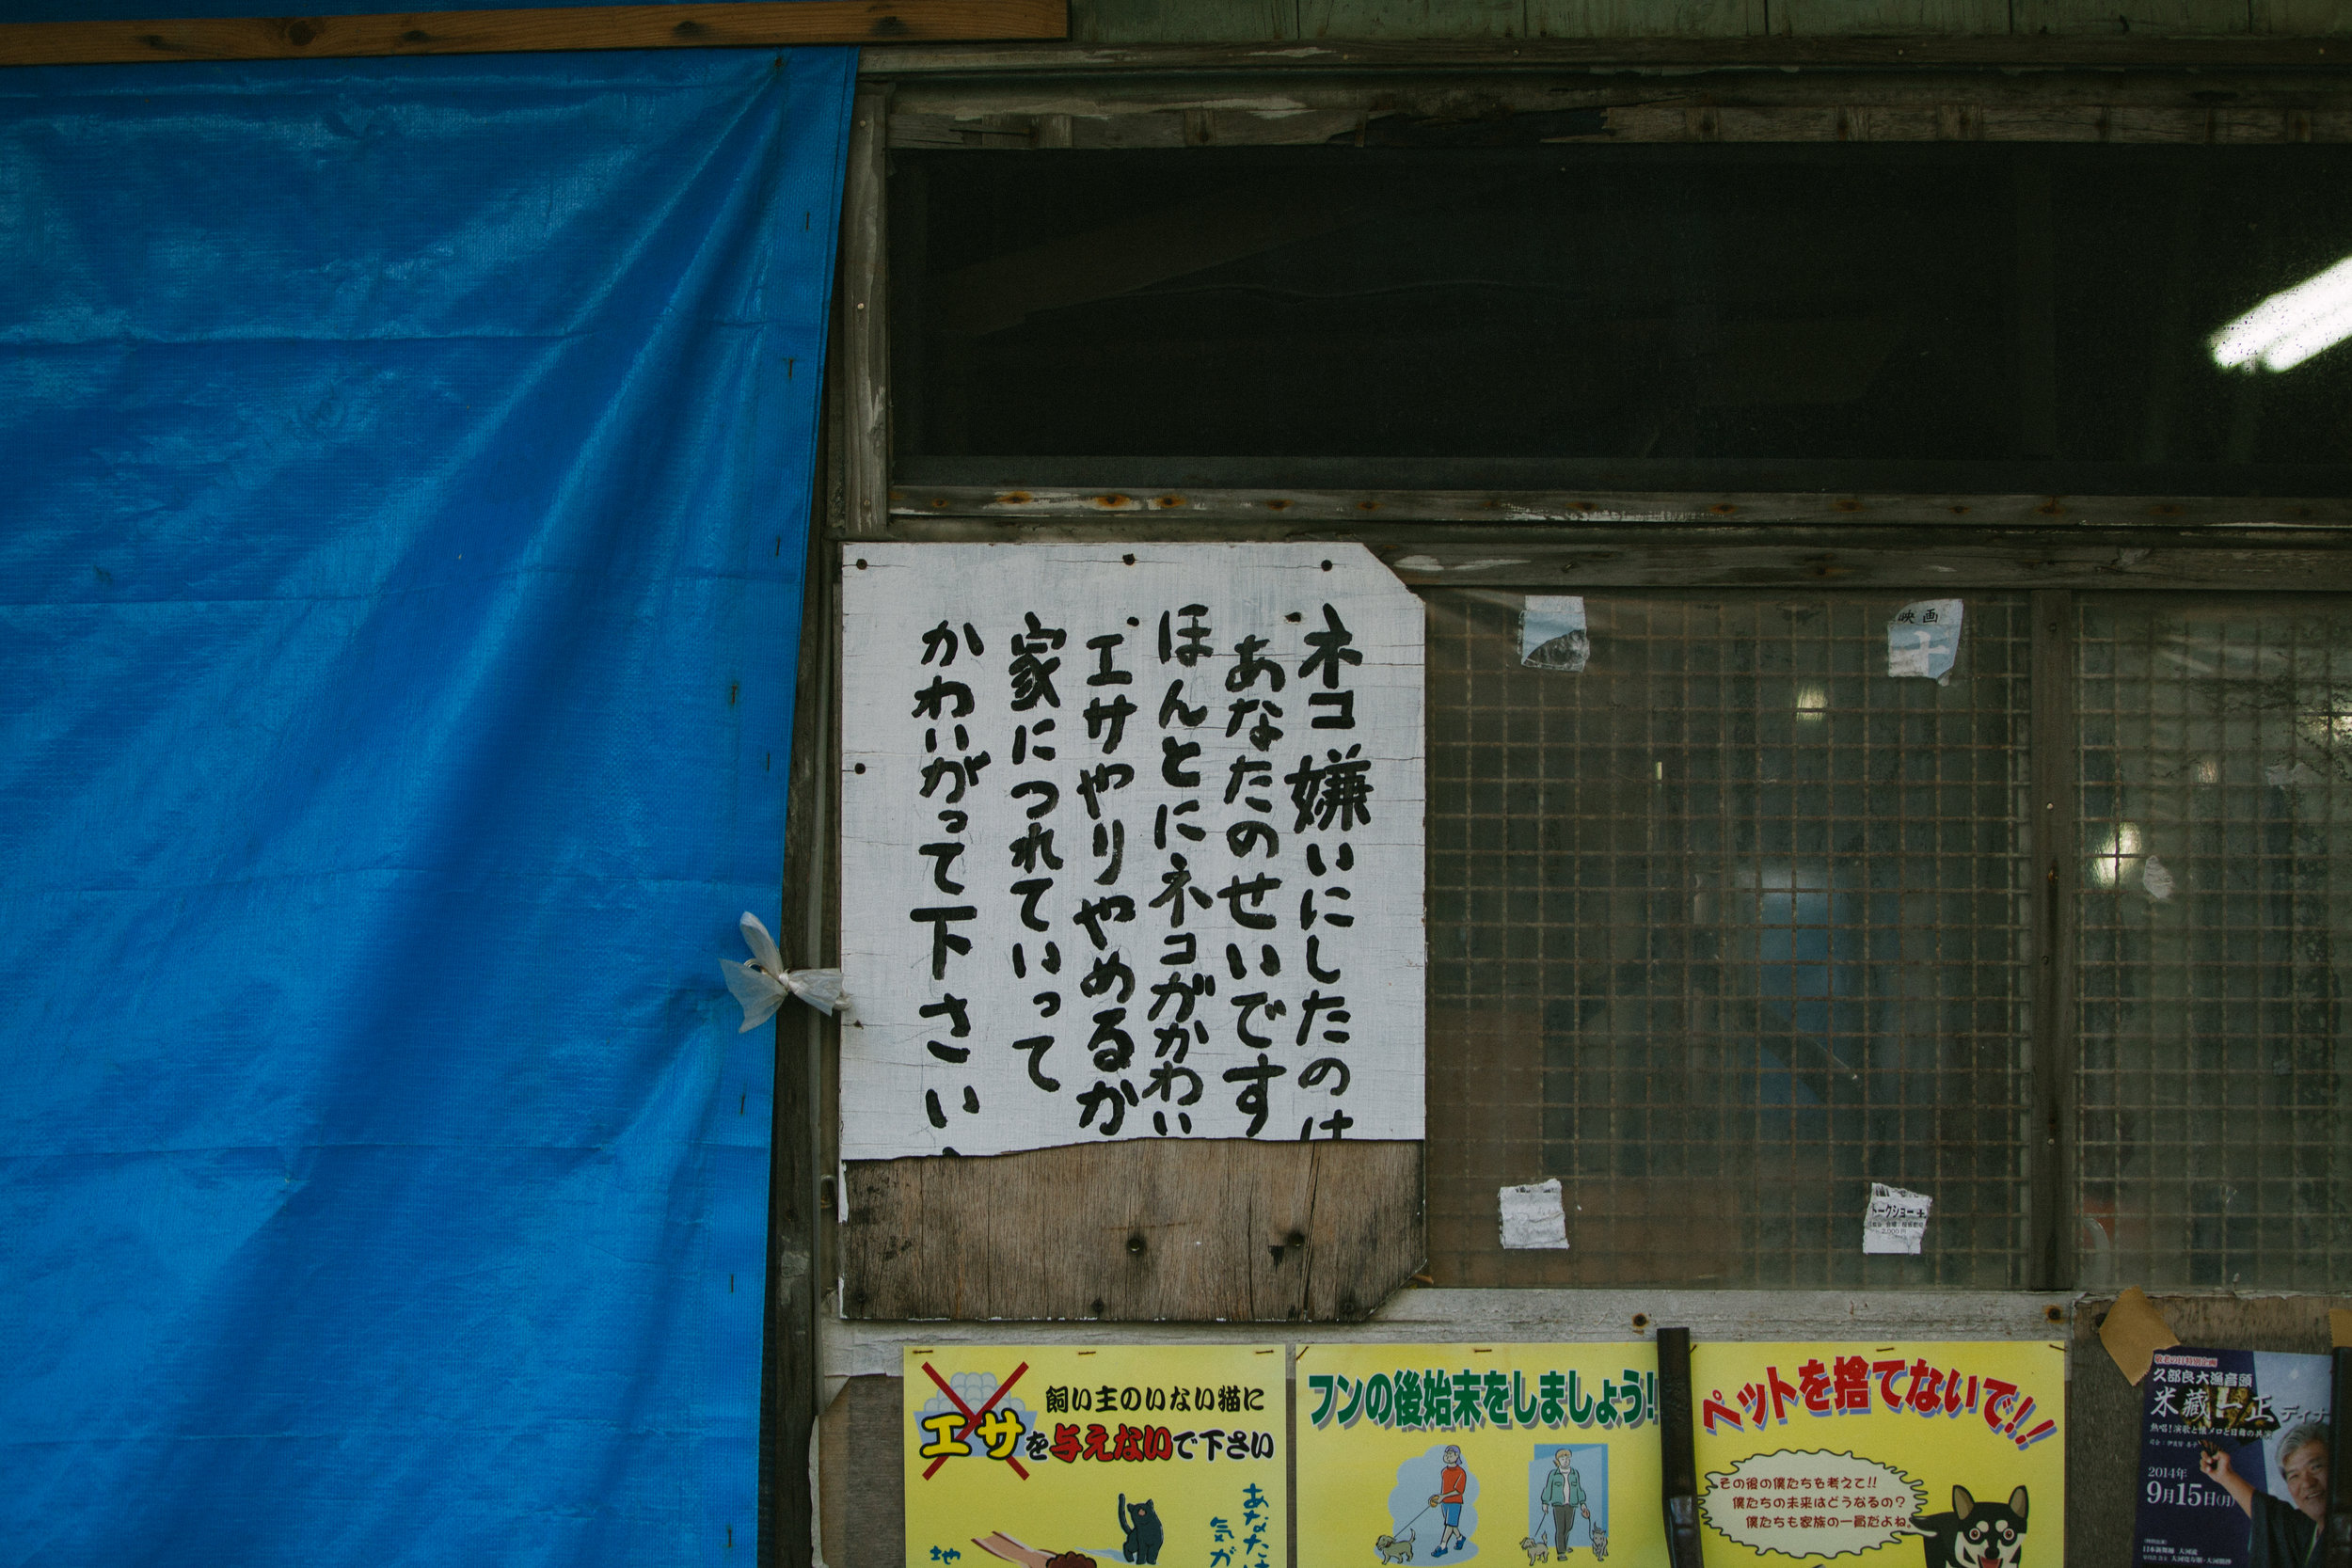 ネコ嫌いにしたのは
あなたのせいです
ほんとにネコがかわいい
エサやりやめるか
家につれていって
かわいがって下さい
映画
トークショー
飼い主のいない猫に
エサを与えないで下さい
あなたは
気が
地
フンの後始末をしましょう!
ペットを捨てないで!!
その後の僕たちを考えて!!
僕たちの未来はどうなるの?
僕たちも家族の一員だよね
敬老の日特別企画
久部良大漁音頭
米藏一正ディナ
2014年
9月15日(月)